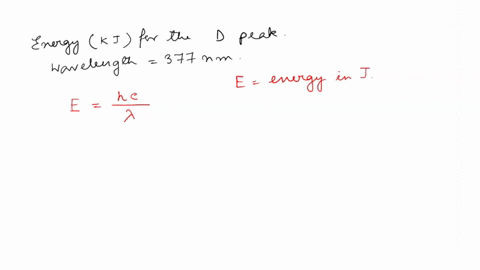 Energy (KJ) for the D peak.
Wavelength = 377 nm.
E = energy in J.
E = hc / λ